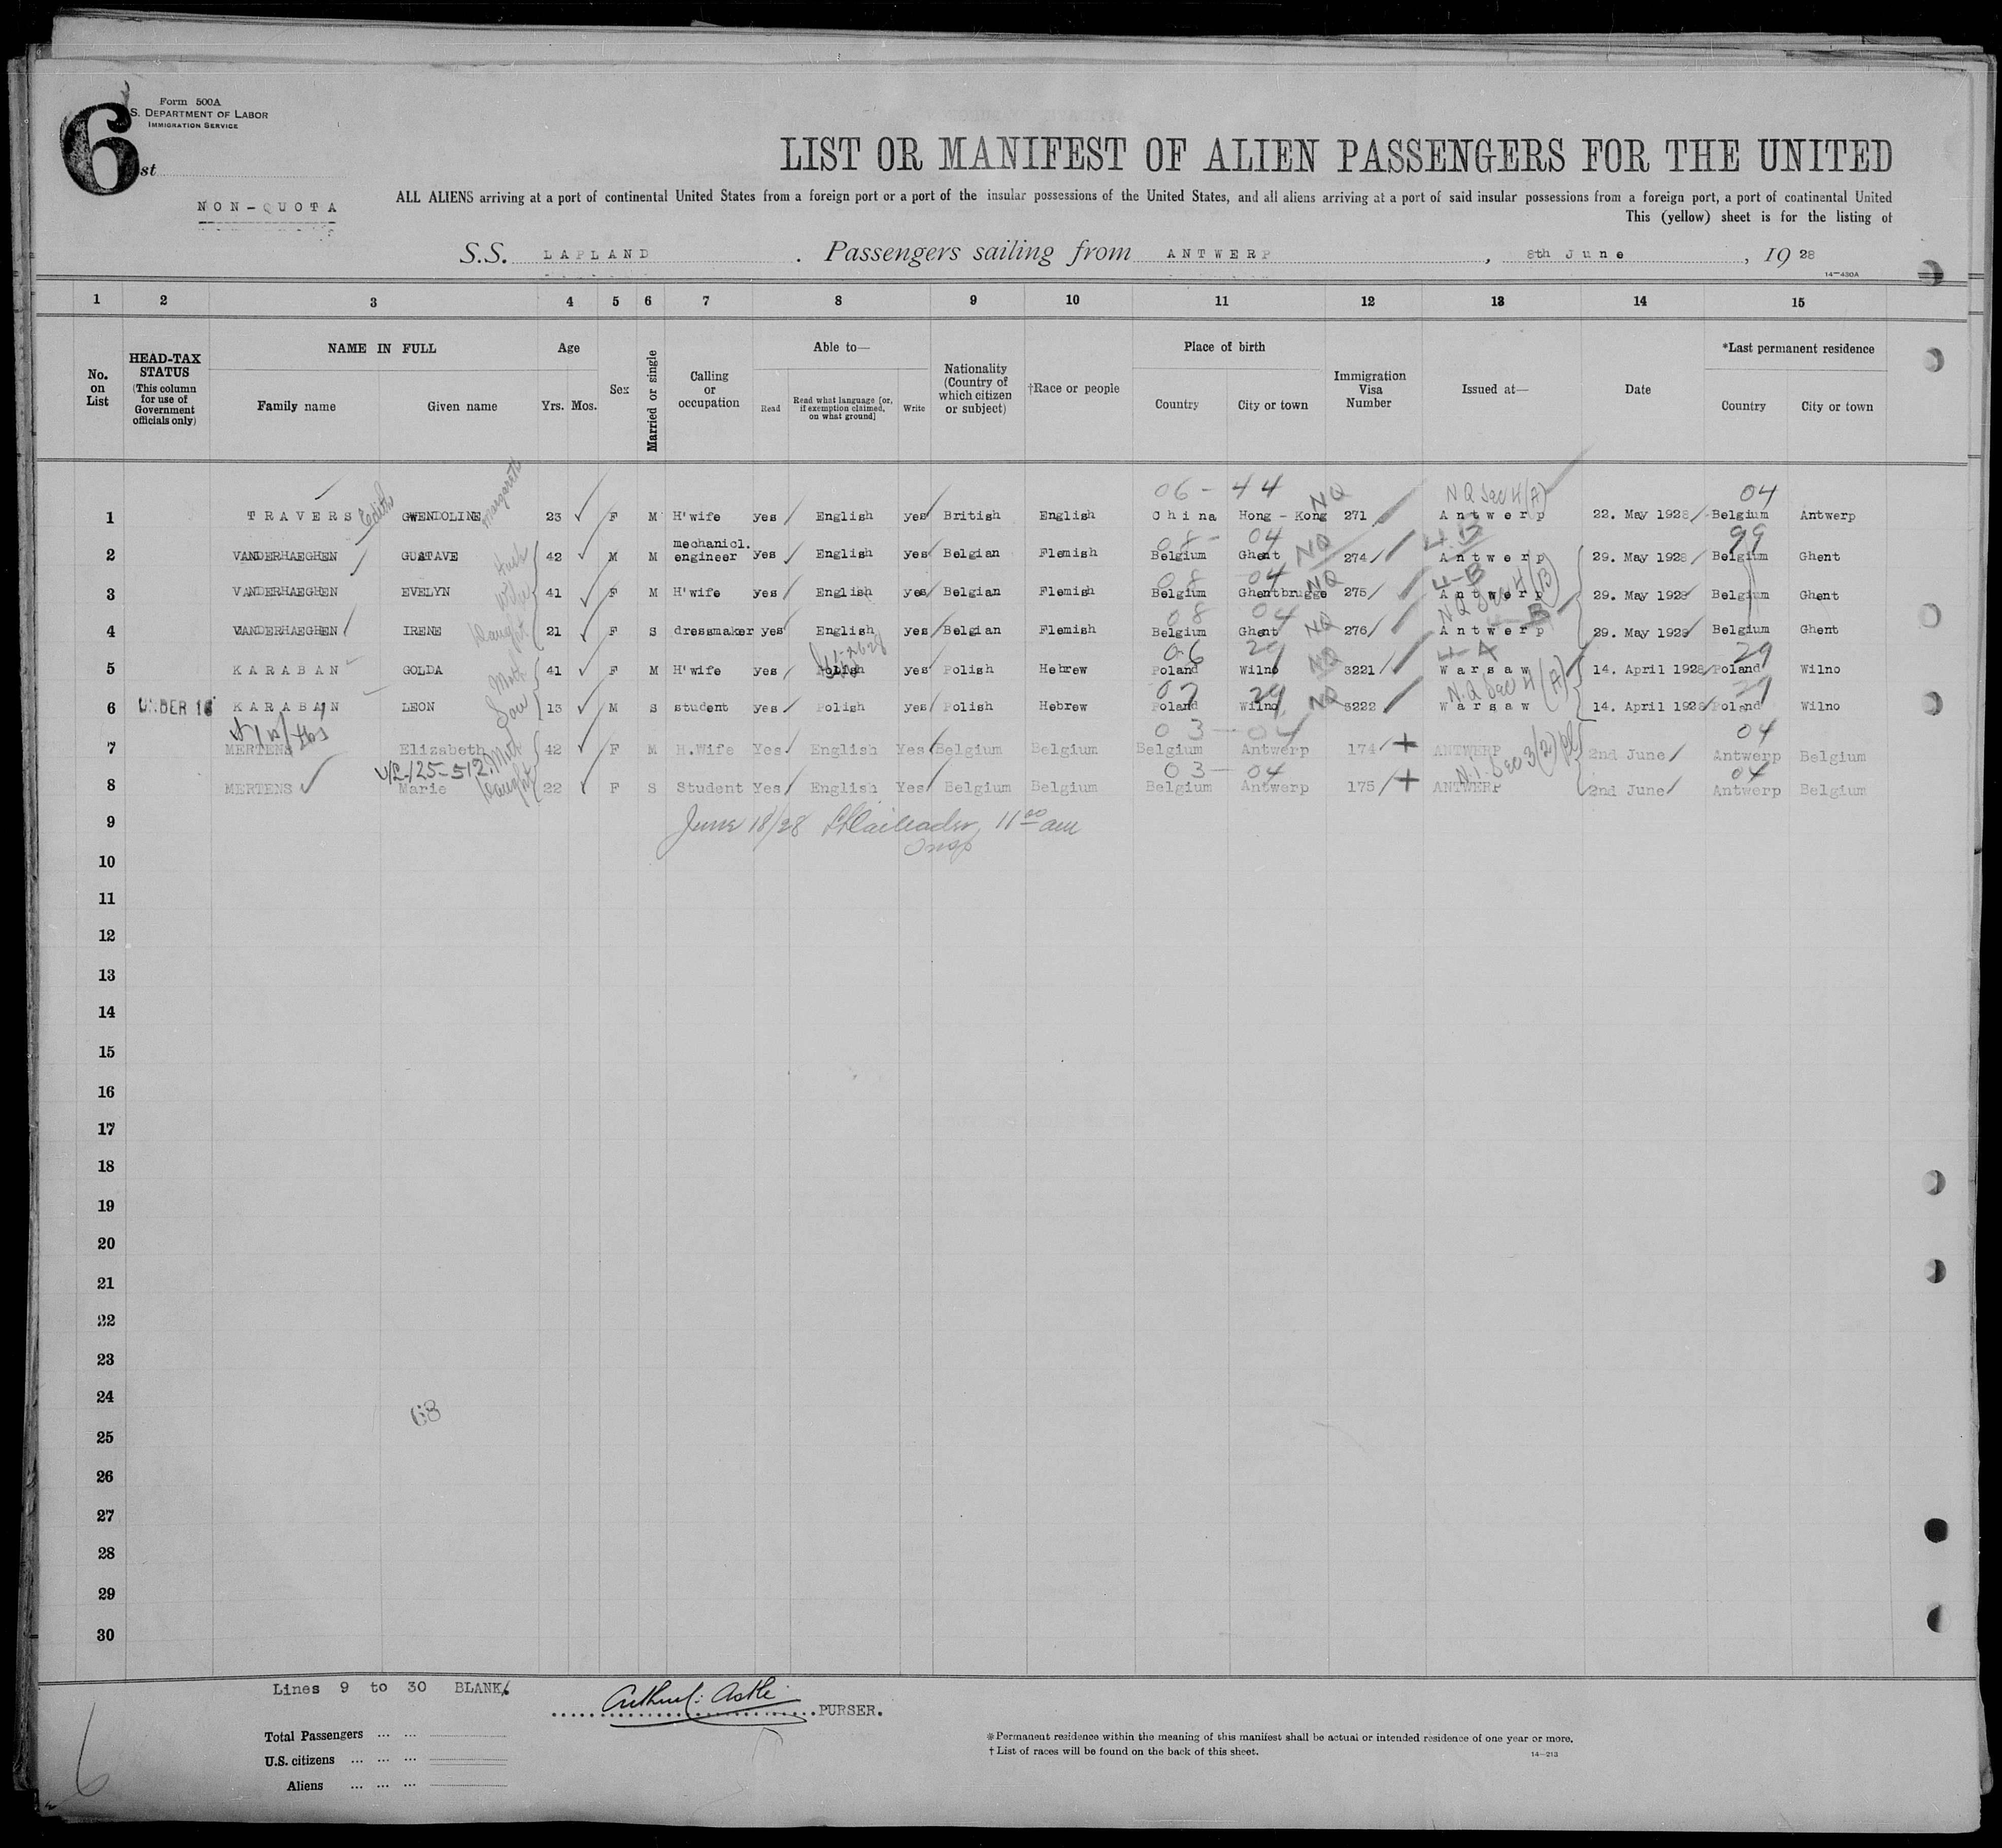 6
Form 500A
S. DEPARTMENT OF LABOR
IMMIGRATION SERVICE
st
NON-QUOTA
LIST OR MANIFEST OF ALIEN PASSENGERS FOR THE UNITED
ALL ALIENS arriving at a port of continental United States from a foreign port or a port of the insular possessions of the United States, and all aliens arriving at a port of said insular possessions from a foreign port, a port of continental United
This (yellow) sheet is for the listing of
S.S. LAPLAND . Passengers sailing from ANTWERP , 8th June , 19 28
14-430A
1 2 3 4 5 6 7 8 9 10 11 12 13 14 15
No. on List
HEAD-TAX STATUS (This column for use of Government officials only)
NAME IN FULL
Family name Given name
Age
Yrs. Mos.
Sex
Married or single
Calling or occupation
Able to—
Read Read what language [or, if exemption claimed, on what ground] Write
Nationality (Country of which citizen or subject)
†Race or people
Place of birth
Country City or town
Immigration Visa Number
Issued at—
Date
*Last permanent residence
Country City or town
06 - 44 NQ NQ Sec 4 (A) 04
1 TRAVERS Edith GWENDOLINE Margareth 23 F M H'wife yes English yes British English China Hong - Kong 271 Antwerp 22. May 1928 Belgium Antwerp
08 - 04 NQ 4-B 99
2 VANDERHAEGHEN GUSTAVE 42 M M mechanicl. engineer yes English yes Belgian Flemish Belgium Ghent 274 Antwerp 29. May 1928 Belgium Ghent
08 04 NQ 4-B
3 VANDERHAEGHEN EVELYN Wife 41 F M H'wife yes English yes Belgian Flemish Belgium Ghentbrugge 275 Antwerp 29. May 1928 Belgium Ghent
08 04 NQ NQ Sec 4 (B) B
4 VANDERHAEGHEN IRENE Daught 21 F S dressmaker yes English yes Belgian Flemish Belgium Ghent 276 Antwerp 29. May 1928 Belgium Ghent
06 29 NQ 4-A 29
5 KARABAN GOLDA Moth 41 F M H'wife yes Polish yes Polish Hebrew Poland Wilno 3221 Warsaw 14. April 1928 Poland Wilno
07 29 NQ N.Q Sec 4 (A) 29
6 UNDER 16 KARABAN LEON Son 13 M S student yes Polish yes Polish Hebrew Poland Wilno 3222 Warsaw 14. April 1928 Poland Wilno
03 - 04 04
7 MERTENS Elizabeth Moth 42 F M H.Wife Yes English Yes Belgium Belgium Belgium Antwerp 174 ANTWERP 2nd June Antwerp Belgium
03 - 04 N.I. Sec 3(2) 04
8 MERTENS Marie Daught 22 F S Student Yes English Yes Belgium Belgium Belgium Antwerp 175 ANTWERP 2nd June Antwerp Belgium
9 June 18/28 11 00 am
10 Insp
11
12
13
14
15
16
17
18
19
20
21
22
23
24
68
25
26
27
28
29
30
Lines 9 to 30 BLANK.
PURSER.
Total Passengers ... ...
U.S. citizens ... ... ...
Aliens ... ... ...
*Permanent residence within the meaning of this manifest shall be actual or intended residence of one year or more.
† List of races will be found on the back of this sheet.
14-213
6